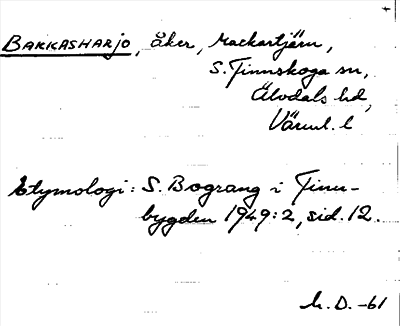 BAKKASHARJO, åker, Mackartjärn,
S. Finnskoga sn,
Älvdals hd,
Värml. l
Etymologi: S. Bograng i Finn-
bygden 1949:2, sid. 12.
M. D. -61